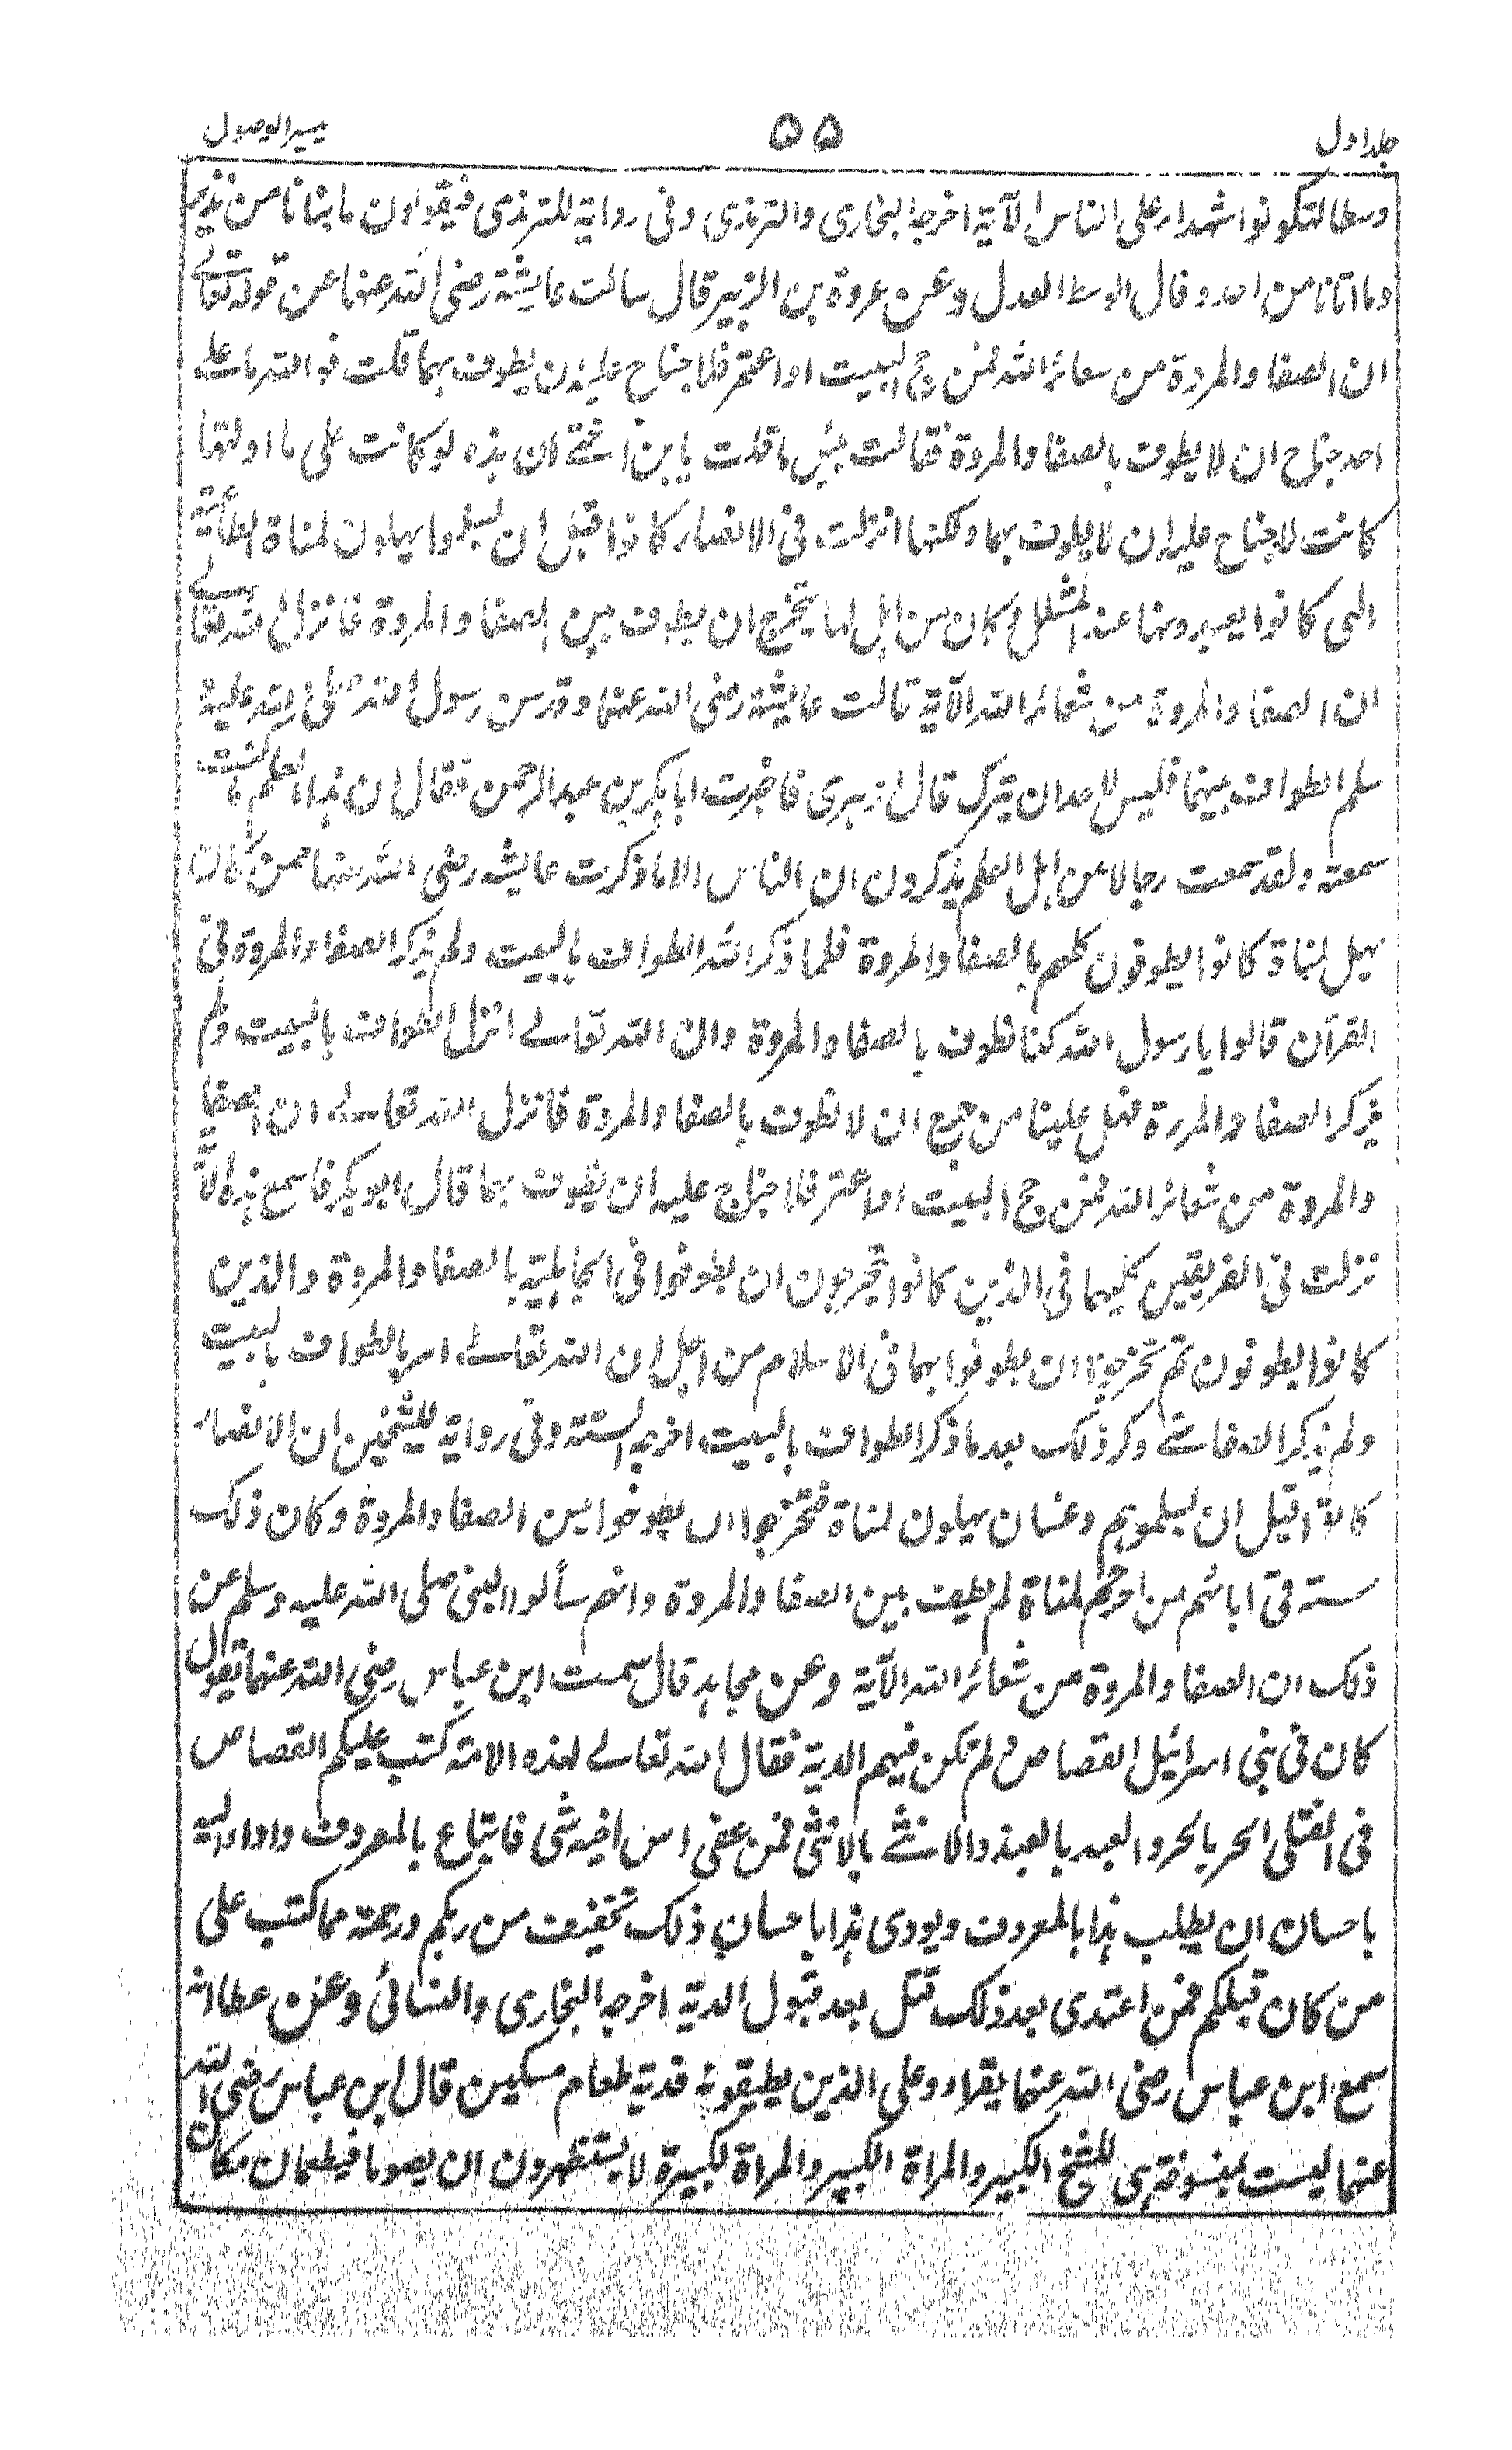 جلد اول ۵۵ تيسير الوصول
وسطا لتكونوا شهداء على الناس الآية اخرجه البخارى والترمذى وفى رواية للترمذى فيقولون ما اتانا من نذير
وما اتانا من احد وقال الوسط العدل وعن عروة بن الزبير قال سالت عايشة رضى الله عنها عن قوله تعالے
ان الصفا والمروة من شعائر الله فمن حج البيت او اعتمر فلا جناح عليه ان يطوف بهما قلت فو الله ما على
احد جناح ان لا يطوف بالصفا والمروة فقالت بئس ما قلت يا بن اختے ان هذه لو كانت على ما اولتها
كانت لا جناح عليه ان لا يطوف بهما ولكنها انزلت فى الانصار كانوا قبل ان يسلموا يهلون لمناة الطاغية
التى كانوا يعبدونها عند المشلل وكان من اهل لها يتحرج ان يطوف بين الصفا والمروة فانزل الله تعالے
ان الصفا والمروة من شعائر الله الآية قالت عايشة رضى الله عنها وقد سن رسول الله صلى الله عليه و
سلم الطواف بينهما فليس لاحد ان يترك قال الزهرى فاخبرت ابا بكر بن عبد الرحمن فقال ان هذا العلم ما كنت
سمعته ولقد سمعت رجالا من اهل العلم يذكرون ان الناس الا ما ذكرت عايشة رضى الله عنها ممن كان
يهل لمناة كانوا يطوفون كلهم بالصفا والمروة فلما ذكر الله الطواف بالبيت ولم يذكر الصفا والمروة فى
القرآن قالوا يا رسول الله كنا نطوف بالصفا والمروة وان الله تعالے انزل الطواف بالبيت ولم
يذكر الصفا والمروة فهل علينا من حرج ان لا نطوف بالصفا والمروة فانزل الله تعالے ان الصفا
والمروة من شعائر الله فمن حج البيت او اعتمر فلا جناح عليه ان يطوف بهما قال ابو بكر فاسمع هذه الآية
نزلت فى الفريقين كليهما فى الذين كانوا يتحرجون ان يطوفوا فى الجاهلية بالصفا والمروة والذين
كانوا يطوفون ثم تحرجوا ان يطوفوا بهما فى الاسلام من اجل ان الله تعالے امر بالطواف بالبيت
ولم يذكر الصفا حتے ذكر ذلك بعد ما ذكر الطواف بالبيت اخرجه الستة وفى رواية للشيخين ان الانصار
كانوا قبل ان يسلموا هم وغسان يهلون لمناة فتحرجوا ان يطوفوا بين الصفا والمروة وكان ذلك
سنة فى ابائهم من احرم لمناة لم يطف بين الصفا والمروة وانهم سألوا النبى صلى الله عليه وسلم عن
ذلك ان الصفا والمروة من شعائر الله الآية وعن مجاهد قال سمعت ابن عباس رضى الله عنهما يقول
كان فى بنى اسرائيل القصاص ولم تكن فيهم الدية فقال الله تعالے لهذه الامة كتب عليكم القصاص
فى القتلى الحر بالحر والعبد بالعبد والانثے بالانثى فمن عفى له من اخيه شى فاتباع بالمعروف واداء اليه
باحسان ان يطلب هذا بالمعروف ويودى هذا باحسان ذلك تخفيف من ربكم ورحمة مما كتب على
من كان قبلكم فمن اعتدى بعد ذلك قتل بعد قبول الدية اخرجه البخارى والنسائى وعن عطا انه
سمع ابن عباس رضى الله عنهما يقراء وعلى الذين يطيقونه فدية طعام مسكين قال ابن عباس رضى الله
عنهما ليست بمنسوخة هى للشيخ الكبير والمراة الكبير والمراة الكبيرة لا يستطيعون ان يصوما فيطعمان مكان